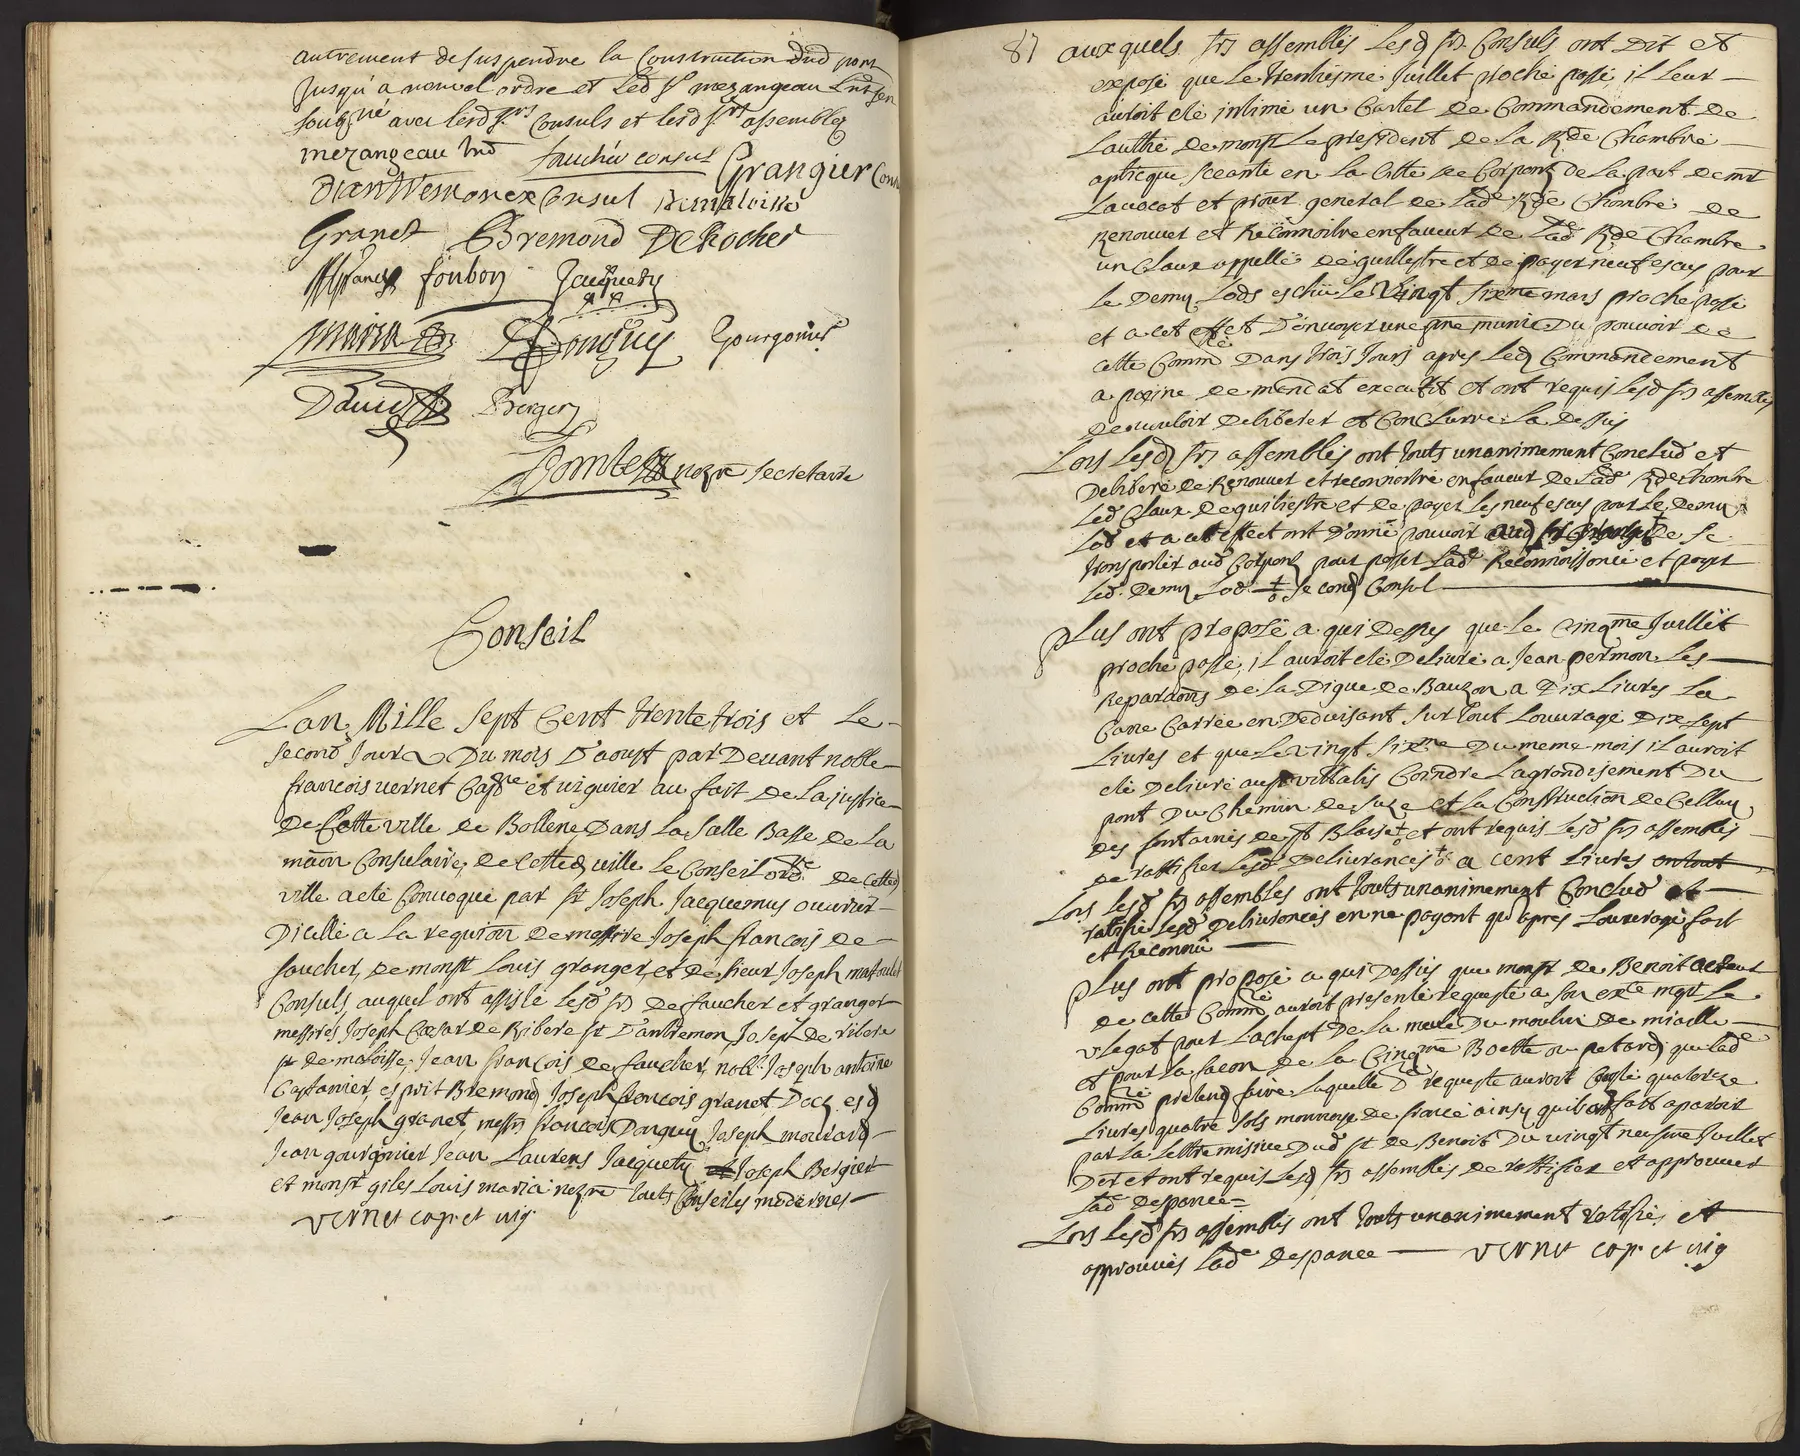 autrement de suspendre la Construction dud pont
Jusqu'a nouvel ordre et led Sr mezangeau
soubsné avec lesd Srs Consuls et lesd Srs assemblez
mezangeau faucher consul Grangier Cons
Dantremon ex Consul De maloisse
Granet Bremond De Rocher
foubon Jacquety
Maria Gourgonier
David Bergier
secretaire
Conseil
Lan Mille Sept Cent trente trois et Le
second Jour Du mois D'aoust par Devant noble
francois vernet Capne et viguier au fait de La justice
De Cette ville de Bollene Dans La Salle Basse de La
maon Consulaire de Cetted ville Le Conseil ordre De Cetted
ville a eté Convoqué par Sr Joseph Jacquemus ouvrier
D'icelle a La requion de messire Joseph francois de
faucher, de monsr Louis granger, et de sieur Joseph
Consuls, auquel ont assisté lesd Srs de faucher et granger
messires Joseph Cœsar de Ribere Sr D'antremon Joseph de ribere
Sr de maloisse, Jean francois de faucher, noble Joseph antoine
Castanier, esprit Bremond Joseph francois granet Docq esd
Jean Joseph granet, messrs francois Joseph mourard
Jean gourgonier Jean Laurens Jacquety et Joseph Bergier
et monsr giles Louis maria nozre touts Conseiles modernes
vernet cap. et vig.
87 auxquels Srs assemblés Lesd Srs Consuls ont Dit et
exposé que Le trentiesme Juillet proche passé, il leur
auroit eté intimé un Cartel de Commandement de
Lauthté de monsr Le president de La Rde Chambre
apticque sceante en La Citté de Corpond De La part de mr
Lavocat et procur general de Lade Rde Chambre De
Renouver et Recônnoitre en faveur de Lade Rde Chambre
un Claux appellé de guillestre et de payer neuf escus pour
le Demy Lods eschu Le Vingt sixme mars proche passé
et a cet effet D'envoyer une pne munie Du pouvoir de
cette Commté Dans trois Jours apres Led Commandement
a peine de mandat executif et ont requis Lesd Srs assemblés
de vouloir Deliberer et Conclurre La Dessus
Lors Lesd Srs assemblés ont touts unanimement Conclud et
Deliberé de Renouver et reconnoitre en faveur de Lade Rde Chambre
Led Claux de guiliestre et de payer Les neuf escus pour Le Demy
Lod et a cet effect ont Donné pouvoir aud Sr De se
transporter aud Corpond pour passer Lade Reconnoissance et payer
Led Demy Lod + second Consul
Plus ont proposé a qui Dessus que Le Cinqme Juillet
proche passé, il auroit eté Delivré a Jean permon Les
Reparaôns de La Digue de Bauzon a Dix Livres La
Cane Carrée en Deduisant sur tout Louvrage Dix sept
Livres et que Le Vingt sixme Du meme mois il auroit
eté Delivré au Sr vittalis Coindre Lagrandisement Du
pont Du Chemin de Suze et La Construction de Celluy
des fontaines de St Blaise et ont requis Lesd Srs assemblés
de rattifier Lesd Delivrances a cent Livres en tout
Lors Lesd Srs assemblés ont touts unanimement Conclud et
ratifié Lesd Delivrances en ne payant qu'apres Louvrage fait
et Reconnu
Plus ont proposé a qui Dessus que monsr de Benoit
de cette Commté auroit presenté requeste a son exce mgr Le
v Legat pour Lachept De La meule Du moulin de
et pour La facon de La Cinqme Boette ou petard, que Lade
Commté pretend faire, Laquelle De requeste auroit Couste quatorze
Livres quatre sols monnoye de france ainsy quil apariot
par La Lettre missive Dud Sr de Benoit Du vingt neufme Juillet
Der et ont requis Lesd Srs assemblés de rattifier et approuver
Lade Despance
Lors Lesd Srs assemblés ont touts unanimement ratifié et
approuvés Lade Despance vernet cap. et vig